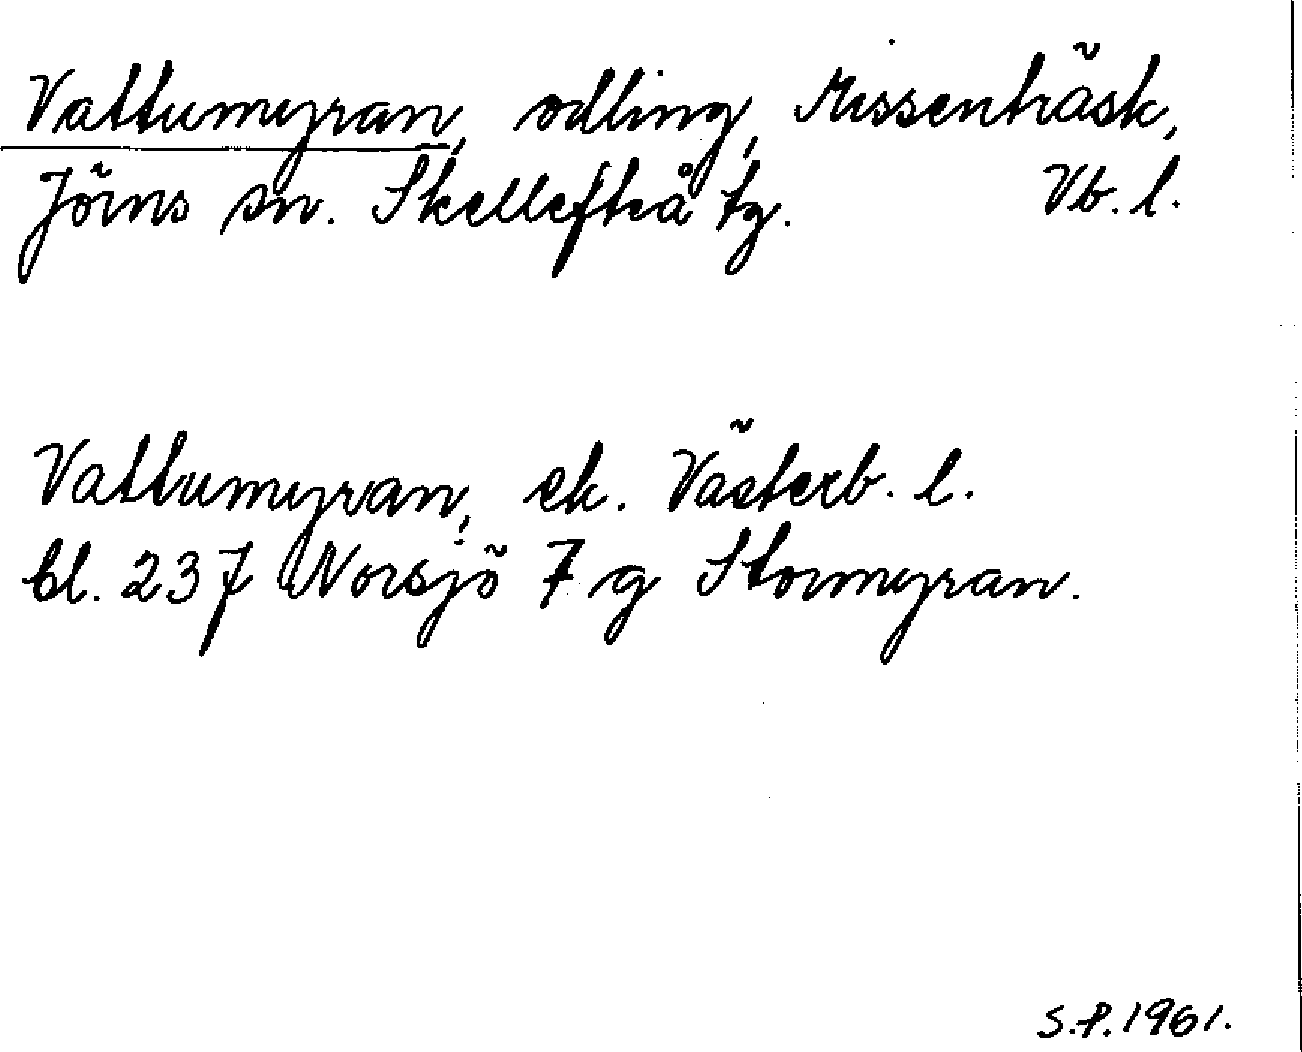 Vattumyran, odling, Missenträsk,
Jörns sn. Skellefteå tg. Vb. l.
Vattumyran, ek. Västerb. l.
bl. 237 Norsjö 7 g Stormyran.
S.P. 1961.